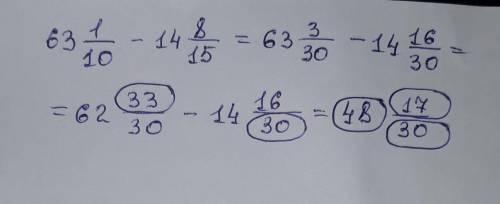 63 1/10 - 14 8/15 = 63 3/30 - 14 16/30 =
= 62 33/30 - 14 16/30 = 48 17/30